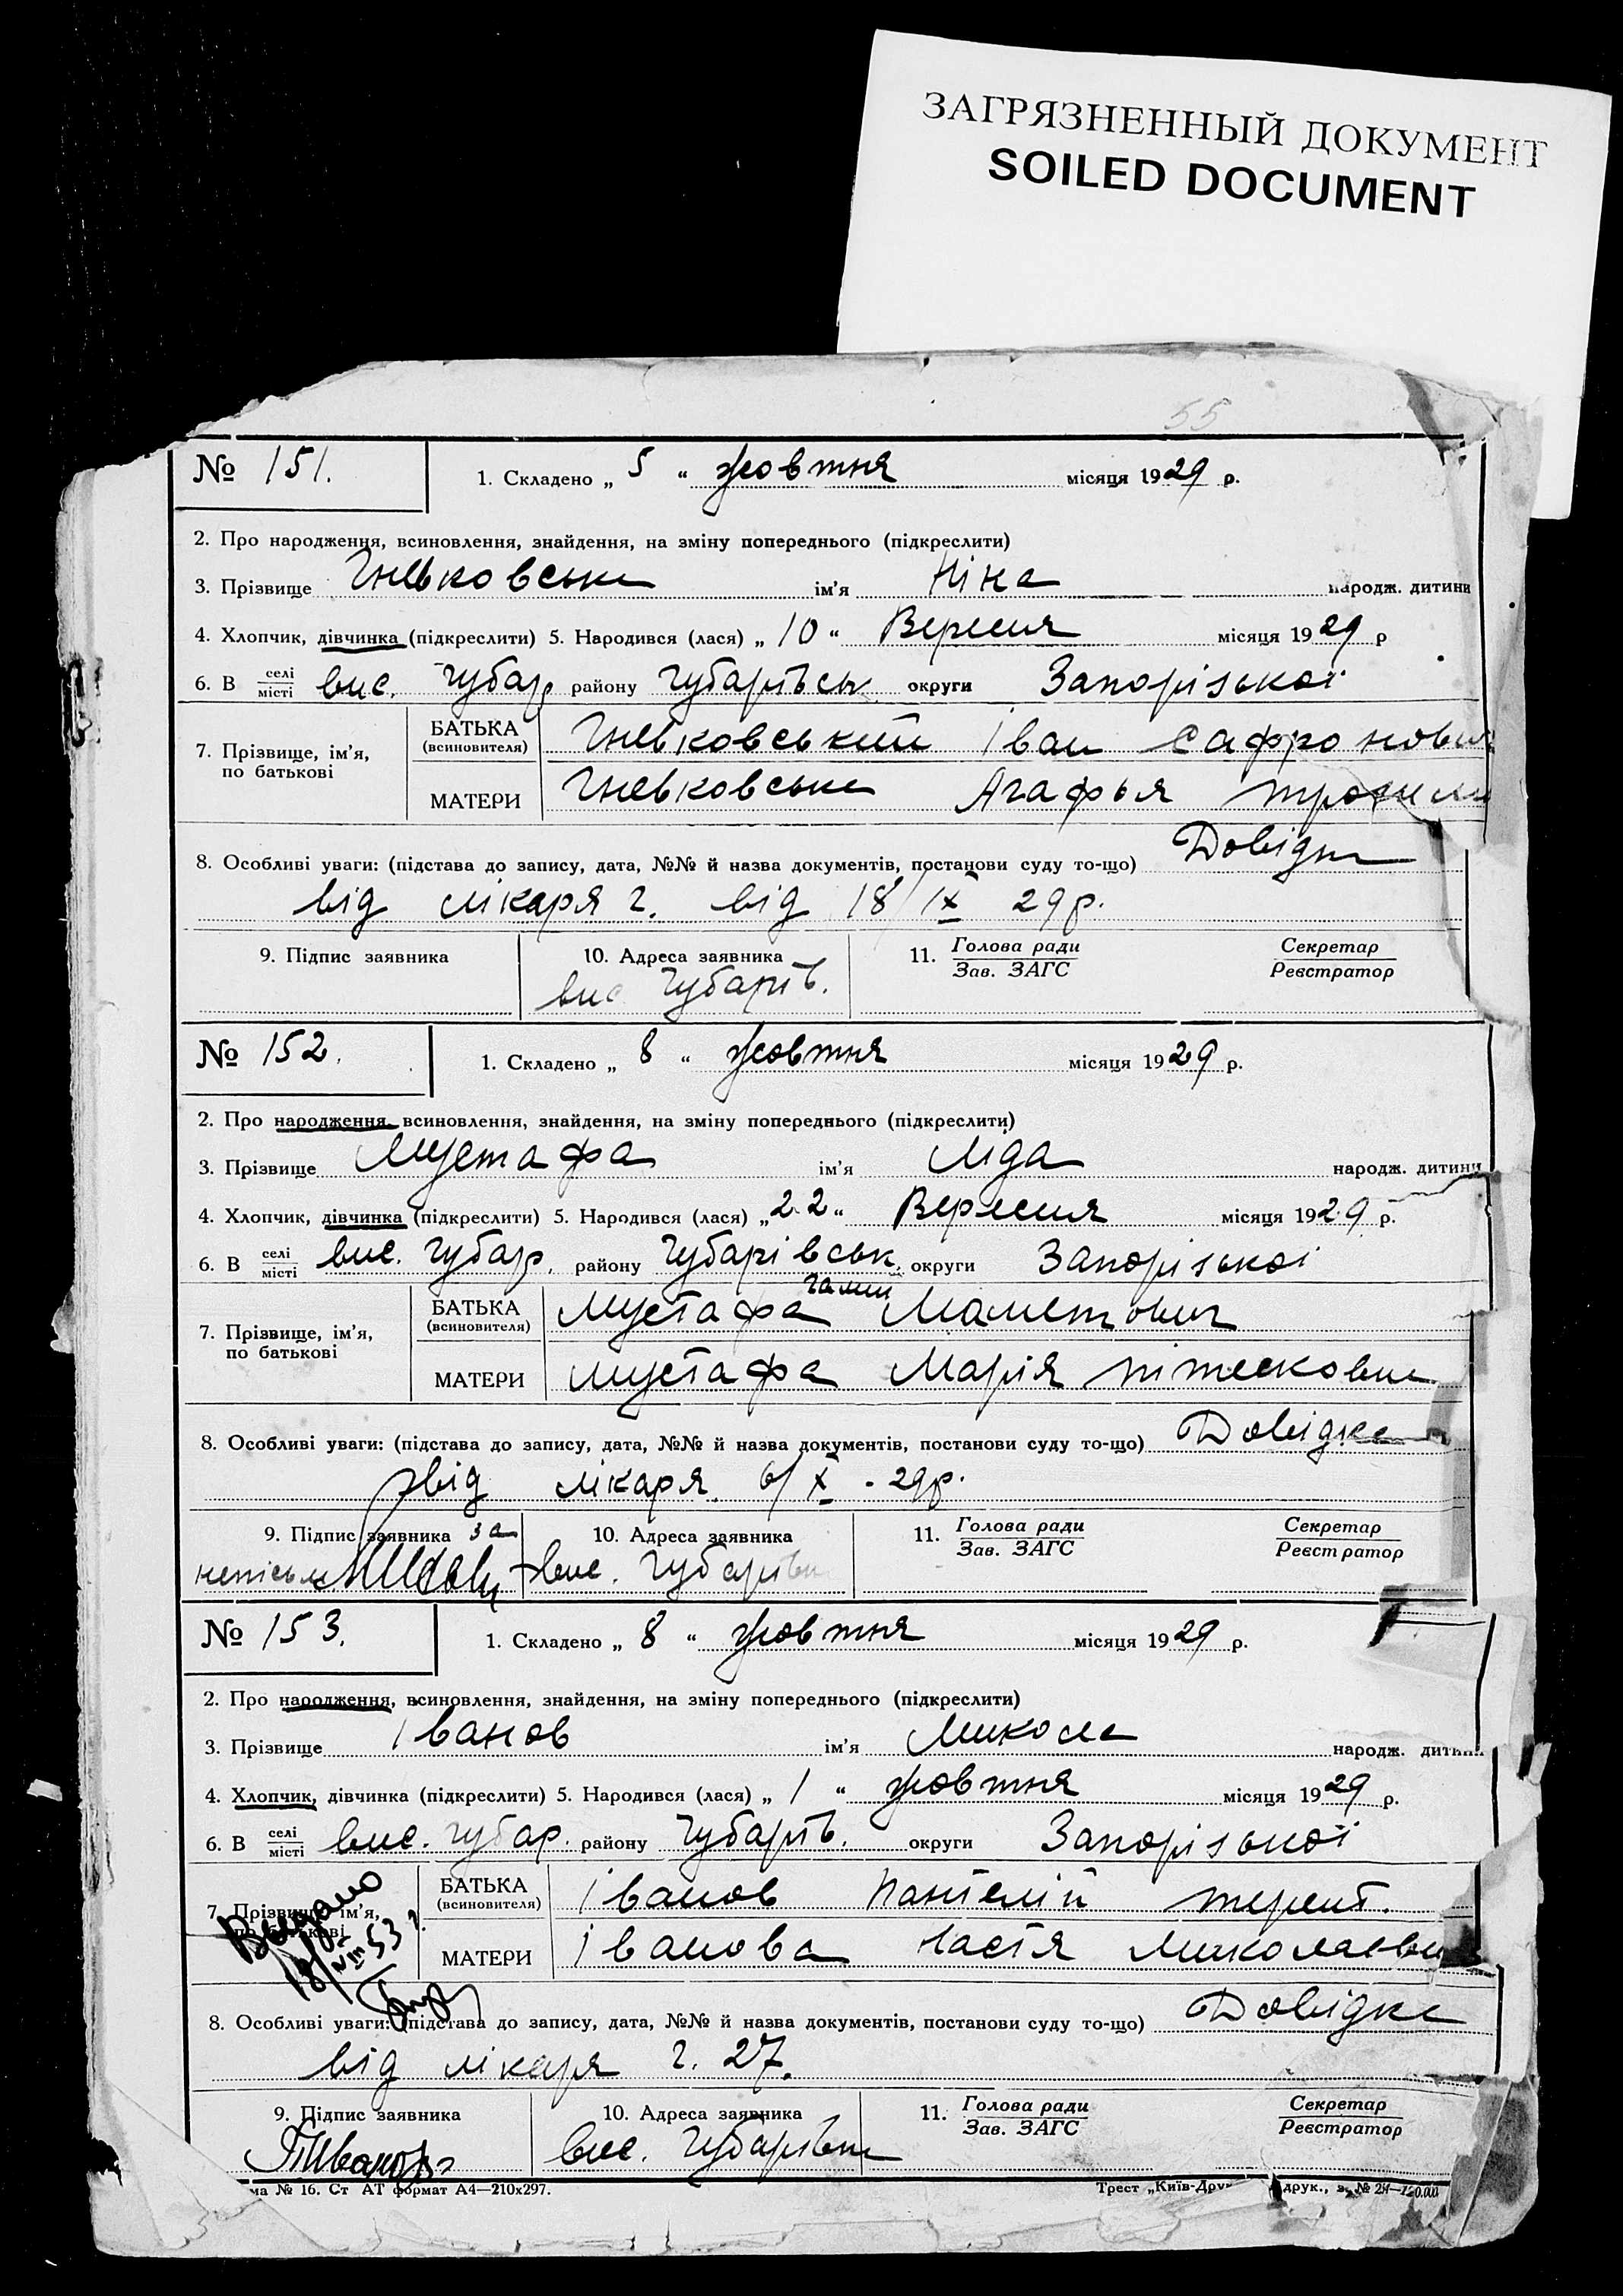 ЗАГРЯЗНЕННЫЙ ДОКУМЕНТ
SOILED DOCUMENT
55
№ 151. 1. Складено „ 5 “ жовтня місяця 1929 р.
2. Про народження, всиновлення, знайдення, на зміну попереднього (підкреслити)
3. Прізвище ім'я Ніна народж. дитини
4. Хлопчик, дівчинка (підкреслити) 5. Народився (лася) „ 10 “ Вересня місяця 1929 р
6. В селі місті вис. Губар району Губарівськ округи Запорізької
7. Прізвище, ім'я, по батькові
БАТЬКА (всиновителя) Гневковський Іван
МАТЕРИ Агафья
8. Особливі уваги: (підстава до запису, дата, №№ й назва документів, постанови суду то-що)
від лікаря г. від 18/IX 29р.
9. Підпис заявника 10. Адреса заявника 11. Голова ради Зав. ЗАГС Секретар Реєстратор
вис Губарів.
№ 152. 1. Складено „ 8 “ жовтня місяця 1929 р.
2. Про народження, всиновлення, знайдення, на зміну попереднього (підкреслити)
3. Прізвище Мустафа ім'я Ліда народж. дитини
4. Хлопчик, дівчинка (підкреслити) 5. Народився (лася) „ 22 “ Вересня місяця 1929 р.
6. В селі місті вис. Губар. району Губарівськ. округи Запорізької
7. Прізвище, ім'я, по батькові
БАТЬКА (всиновителя) Мустафа Маметович
МАТЕРИ Мустафа Марія
8. Особливі уваги: (підстава до запису, дата, №№ й назва документів, постанови суду то-що) Довідка
від лікаря 6/X - 29р.
9. Підпис заявника за 10. Адреса заявника 11. Голова ради Зав. ЗАГС Секретар Реєстратор
вис.
№ 153. 1. Складено „ 8 “ жовтня місяця 1929 р.
2. Про народження, всиновлення, знайдення, на зміну попереднього (підкреслити)
3. Прізвище Іванов ім'я Микола народж.
4. Хлопчик, дівчинка (підкреслити) 5. Народився (лася) „ 1 “ жовтня місяця 1929 р.
6. В селі місті вис. Губар. району Губарів. округи Запорізької
7. Прізвище, ім'я, по батькові
БАТЬКА (всиновителя) Іванов Пантелій терент.
МАТЕРИ Іванова Настя
8. Особливі уваги: (підстава до запису, дата, №№ й назва документів, постанови суду то-що) Довідка
від лікаря г. 27.
9. Підпис заявника 10. Адреса заявника 11. Голова ради Зав. ЗАГС Секретар Реєстратор
вис.
№ 16. Ст АТ формат А4—210х297. Трест друк.,